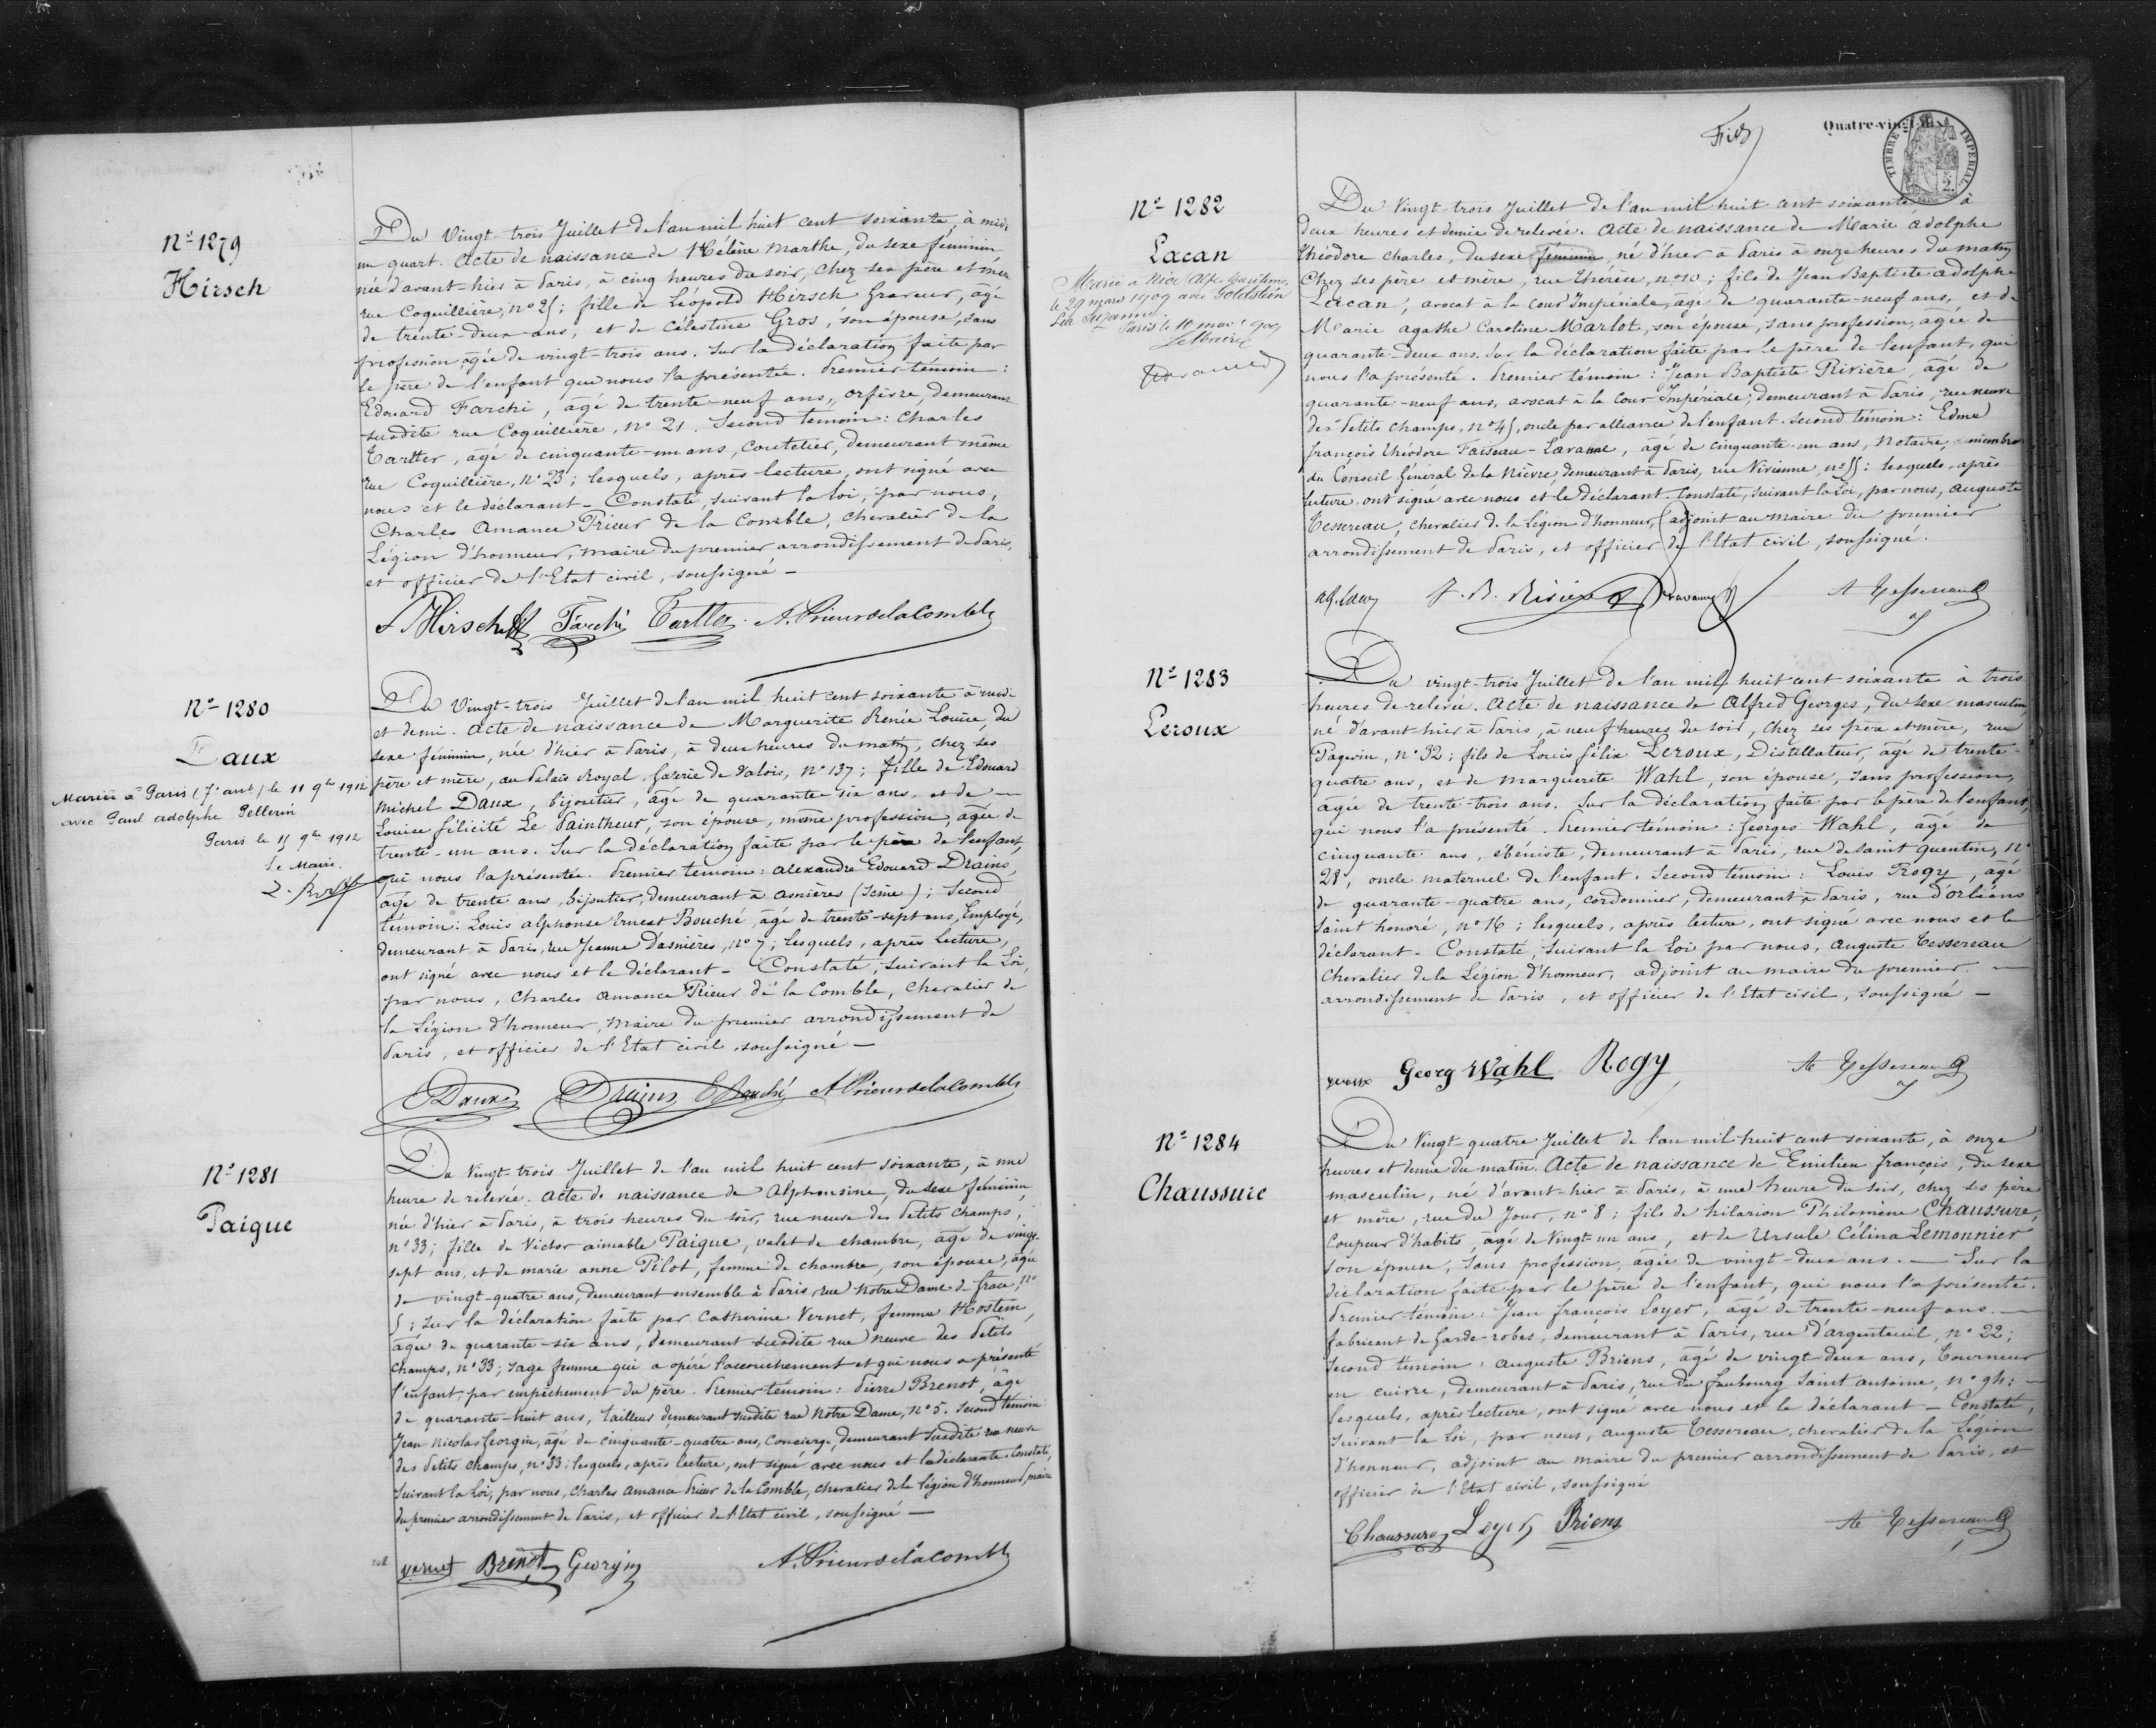 N° 1279
Hirsch
Du Vingt trois Juillet de l'an mil huit cent soixante, à midi
un quart. Acte de naissance de Hélène Marthe, du sexe féminin
née d'avant hier à Paris, à cinq heures du soir, chez ses père et mère
rue Coquillière, n° 25; fille de Léopold Hirsch Graveur, âgé
de trente-deux ans, et de Célestine Gros, son épouse, sans
profession, âgée de vingt-trois ans. Sur la déclaration faite par
le père de l'enfant que nous l'a présentée. Premier témoin:
Edouard Farchi, âgé de trente-neuf ans, orfèvre, demeurant
susdite rue Coquillière, n° 21. Second témoin: Charles
Tartter, âgé de cinquante-un ans, Coutelier, demeurant même
rue Coquillière, n° 23; lesquels, après lecture, ont signé avec
nous et le déclarant - Constaté, suivant la loi, par nous,
Charles Amance Prieur de la Comble, chevalier de la
Légion d'honneur, maire du premier arrondissement de Paris,
et officier de l'Etat civil, soussigné -
Hirsch Farchi Tartter A. Prieur de la Comble
N° 1280
Daux
Mariée à Paris (7e arrt) le 11 9bre 1912
avec Paul Adolphe Pellerin
Paris le 15 9bre 1912
Le Maire.
Du Vingt-trois Juillet de l'an mil huit cent soixante à midi
et demi. Acte de naissance de Marguerite Renée Louise, du
sexe féminin, née d'hier à Paris, à deux heures du matin, chez ses
père et mère, au Palais Royal, Galerie de Valois, n° 137; fille de Edouard
Michel Daux, bijoutier, âgé de quarante-six ans, et de
Louise Félicité Le Paintheur, son épouse, même profession, âgée de
trente-un ans. Sur la déclaration faite par le père de l'enfant
qui nous l'a présentée. Premier témoin: Alexandre Edouard Drains,
âgé de trente ans, bijoutier, demeurant à Asnières (Seine); Second
témoin: Louis Alphonse Ernest Bouché, âgé de trente-sept ans, Employé,
demeurant à Paris, rue Jeanne d'asnières, n° 7; lesquels, après lecture,
ont signé avec nous et le déclarant - Constaté, suivant la Loi,
par nous, Charles Amance Prieur de la Comble, Chevalier de
la Légion d'honneur, Maire du premier arrondissement de
Paris, et officier de l'Etat civil soussigné -
Daux Drains E Bouché A. Prieur de la Comble
N° 1281
Paique
Du Vingt-trois Juillet de l'an mil huit cent soixante, à une
heure de relevée. Acte de naissance de Alphonsine, du sexe féminin
née d'hier à Paris, à trois heures du soir, rue neuve des Petits champs,
n° 33; fille de Victor aimable Paique, valet de chambre, âgé de vingt-
sept ans, et de marie anne Pilot, femme de chambre, son épouse, âgée
de vingt-quatre ans, demeurant ensemble à Paris, rue Notre Dame de Grace, n°
5; sur la déclaration faite par Catherine Vernet, femme Hostein
âgée de quarante-six ans, demeurant susdite rue neuve des Petits
champs, n° 33; sage femme qui a opéré l'accouchement et qui nous a présenté
l'enfant, par empêchement du père. Premier témoin: Pierre Brenot, âgé
de quarante-huit ans, tailleur demeurant susdite rue Notre Dame, n° 5. Second témoin:
Jean Nicolas Georgin, âgé de cinquante-quatre ans, Concierge, demeurant susdite rue neuve
des Petits champs, n° 33; lesquels, après lecture, ont signé avec nous et la déclarante. Constaté,
suivant la Loi, par nous, Charles amance Prieur de la Comble, chevalier de la légion d'honneur, maire
du premier arrondissement de Paris, et officier de l'Etat civil, soussigné -
Vernet Brenot Georgin A. Prieur de la Comble
Quatre-vingt-dix
TIMBRE IMPERIAL
2.
N° 1282
Lacan
Marié à Nice (Alpes Maritimes)
le 29 mars 1909 avec Goldstein
Léa Suzanne.
Le Maire
Du Vingt-trois Juillet de l'an mil huit cent soixante à
deux heures et demie de relevée. Acte de naissance de Marie Adolphe
Théodore Charles, du sexe féminin, né d'hier à Paris à onze heures du matin
Chez ses père et mère, rue Thérèse, n° 10; fils de Jean Baptiste adolphe
Lacan, avocat à la Cour Impériale, âgé de quarante-neuf ans, et de
Marie agathe Caroline Marlot, son épouse, sans profession, âgée de
quarante-deux ans. Sur la déclaration faite par le père de l'enfant, qui
nous l'a présenté. Premier témoin: Jean Baptiste Rivière, âgé de
quarante-neuf ans, avocat à la Cour Impériale, demeurant à Paris, rue neuve
des Petits champs, n° 45, oncle par alliance de l'enfant. Second témoin: Edme
françois Théodore Faiseau-Lavanne, âgé de cinquante-un ans, Notaire, membre
du Conseil Général de la Nièvre, demeurant à Paris, rue Vivienne, n° 55; lesquels, après
lecture ont signé avec nous et le déclarant. Constaté, suivant la Loi, par nous, auguste
Tessereau, chevalier de la Légion d'honneur, adjoint au maire du premier
arrondissement de Paris, et officier de l'Etat civil, soussigné.
J. B. Rivière A Tessereau
N° 1283
Leroux
Du vingt-trois Juillet de l'an mil huit cent soixante à trois
heures de relevée. Acte de naissance de Alfred Georges, du sexe masculin,
né d'avant hier à Paris, à neuf heures du soir, chez ses père et mère, rue
Pagevin, n° 32; fils de Louis félix Leroux, Distillateur, âgé de trente-
quatre ans, et de Marguerite Wahl, son épouse, sans profession,
âgée de trente-trois ans. Sur la déclaration faite par le père de l'enfant,
qui nous l'a présenté. Premier témoin: Georges Wahl, âgé de
cinquante ans, ébéniste, demeurant à Paris, rue de saint quentin, n°
28, oncle maternel de l'enfant. Second témoin: Louis Rogy, âgé
de quarante-quatre ans, cordonnier, demeurant à Paris, rue d'orléans
saint honoré, n° 16; lesquels, après lecture, ont signé avec nous et le
déclarant. Constaté, suivant la Loi par nous, Auguste Tessereau
Chevalier de la Légion d'honneur, adjoint au maire du premier
arrondissement de Paris, et officier de l'Etat civil, soussigné -
Leroux Georg Wahl Rogy A Tessereau
N° 1284
Chaussure
Du Vingt-quatre Juillet de l'an mil huit cent soixante, à onze
heures et demie du matin. Acte de naissance de Emilien françois, du sexe
masculin, né d'avant-hier à Paris, à une heure du soir, chez ses père
et mère, rue du Jour, n° 8; fils de hilarion Philomène Chaussure,
Coupeur d'habits, âgé de Vingt-un ans, et de Ursule Célina Lemonnier
son épouse, sans profession, âgée de vingt-deux ans. - Sur la
déclaration faite par le père de l'enfant, qui nous l'a présenté.
Premier témoin: Jean françois Loyer, âgé de trente-neuf ans. -
fabricant de Garde-robes, demeurant à Paris, rue d'argenteuil, n° 22;
Second témoin: auguste Briens, âgé de vingt-deux ans, Tourneur
en cuivre, demeurant à Paris, rue du faubourg Saint antoine, n° 94; -
lesquels, après lecture, ont signé avec nous et le déclarant - Constaté,
suivant la Loi, par nous, Auguste Tessereau, chevalier de la Légion
d'honneur, adjoint au maire du premier arrondissement de Paris, et
officier de l'Etat civil, soussigné
Chaussure Loyer Briens A Tessereau